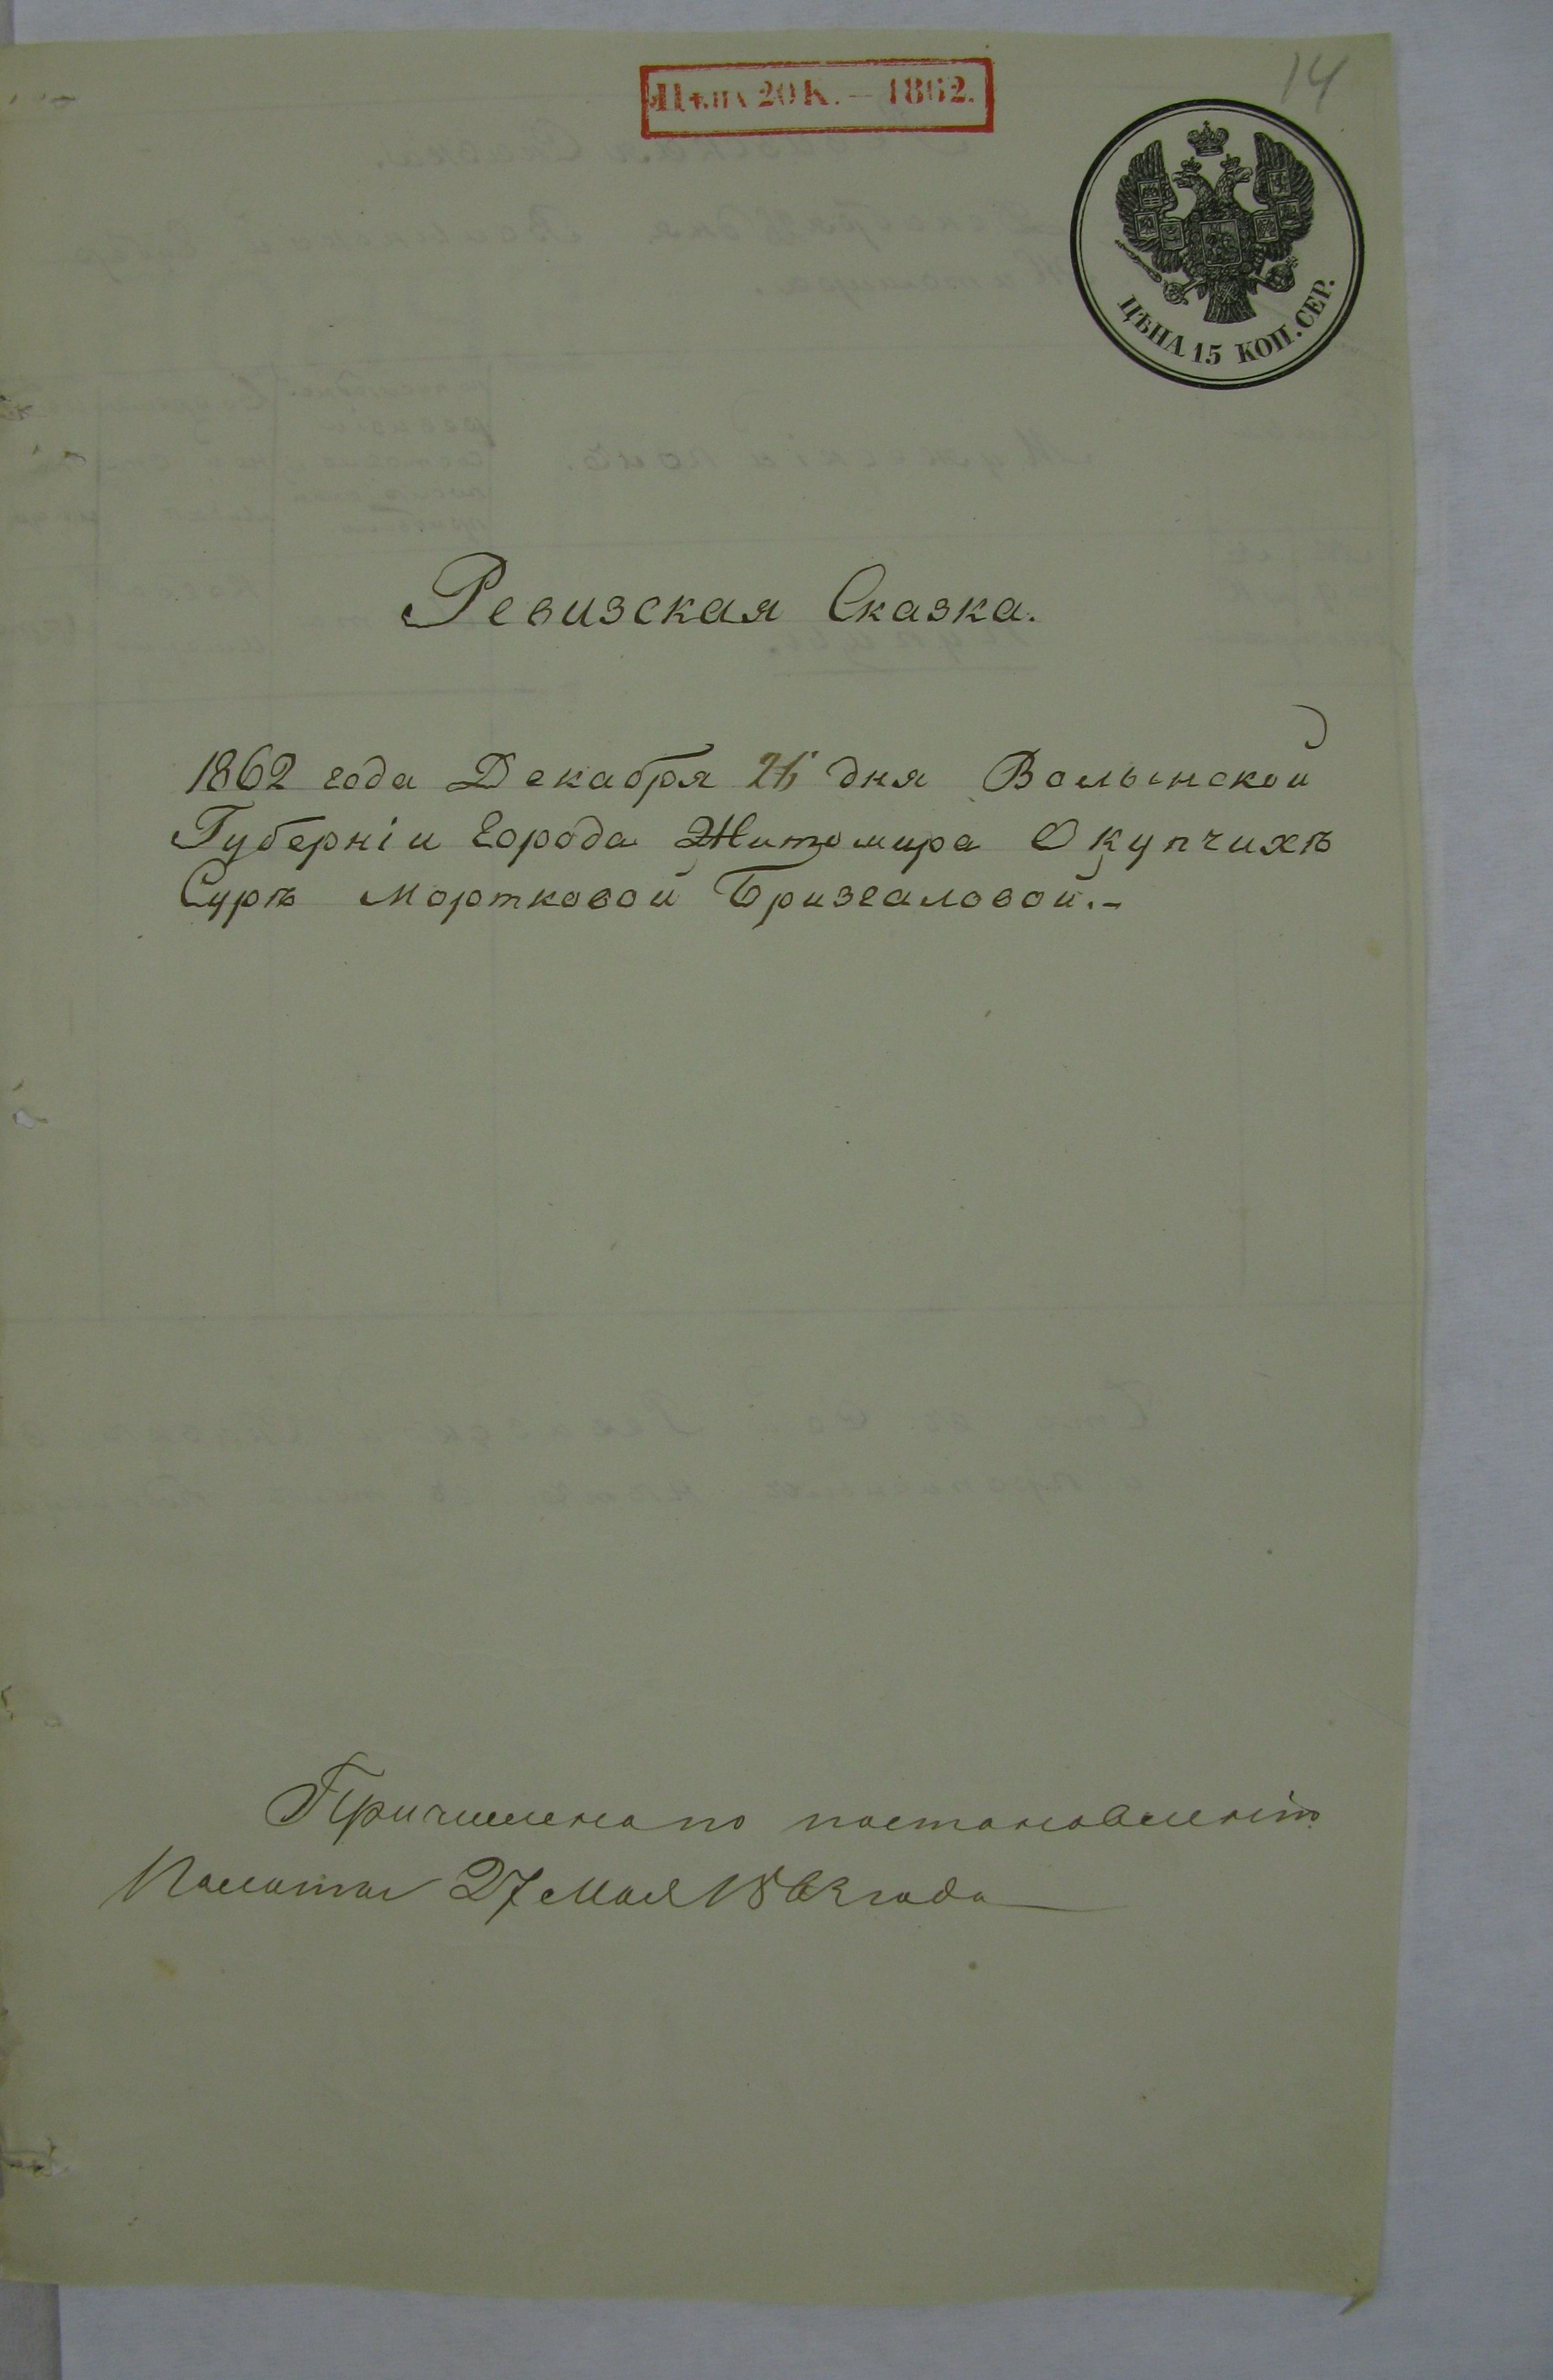 14
Цѣна 20 К. — 1862.
ЦѢНА 15 КОП. СЕР.
Ревизская Сказка.
1862 года Декабря 21 дня Волынской
Губерніи Города Житомира О купчихѣ
Сурѣ Мортковой Бризгаловой.-
Причислена по постановленію
Палаты 27 Мая 1863 года